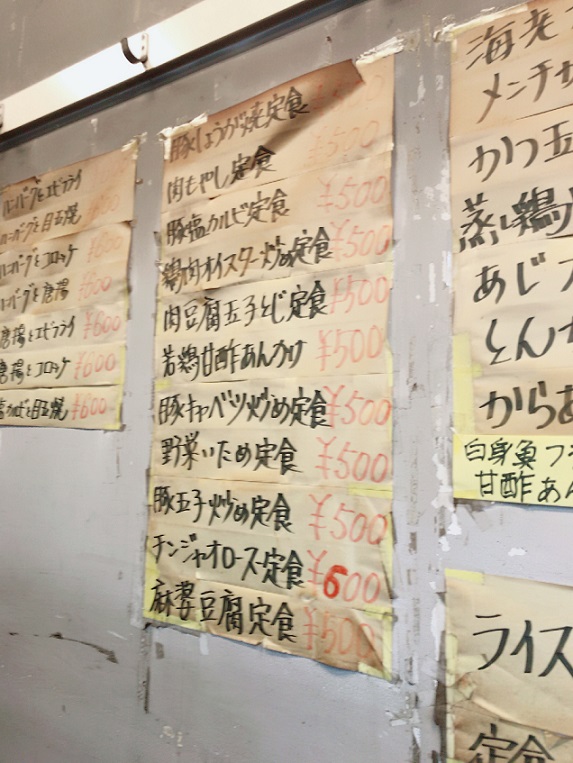 ハンバーグとエビフライ
ハンバーグと目玉焼 ¥600
ハンバーグとコロッケ ¥600
ハンバーグと唐揚 ¥600
唐揚とエビフライ ¥600
唐揚とコロッケ ¥600
目玉焼 ¥600
豚しょうが焼定食
肉もやし定食 ¥500
豚塩カルビ定食 ¥500
鶏肉オイスター炒め定食 ¥500
肉豆腐玉子とじ定食 ¥500
若鶏甘酢あんかけ ¥500
豚キャベツ炒め定食 ¥500
野菜いため定食 ¥500
豚玉子炒め定食 ¥500
チンジャオロース定食 ¥600
麻婆豆腐定食 ¥500
海老
メンチカ
かつ玉
蒸し鶏
あじフ
とんか
からあ
白身魚フラ
甘酢あん
ライス
定食